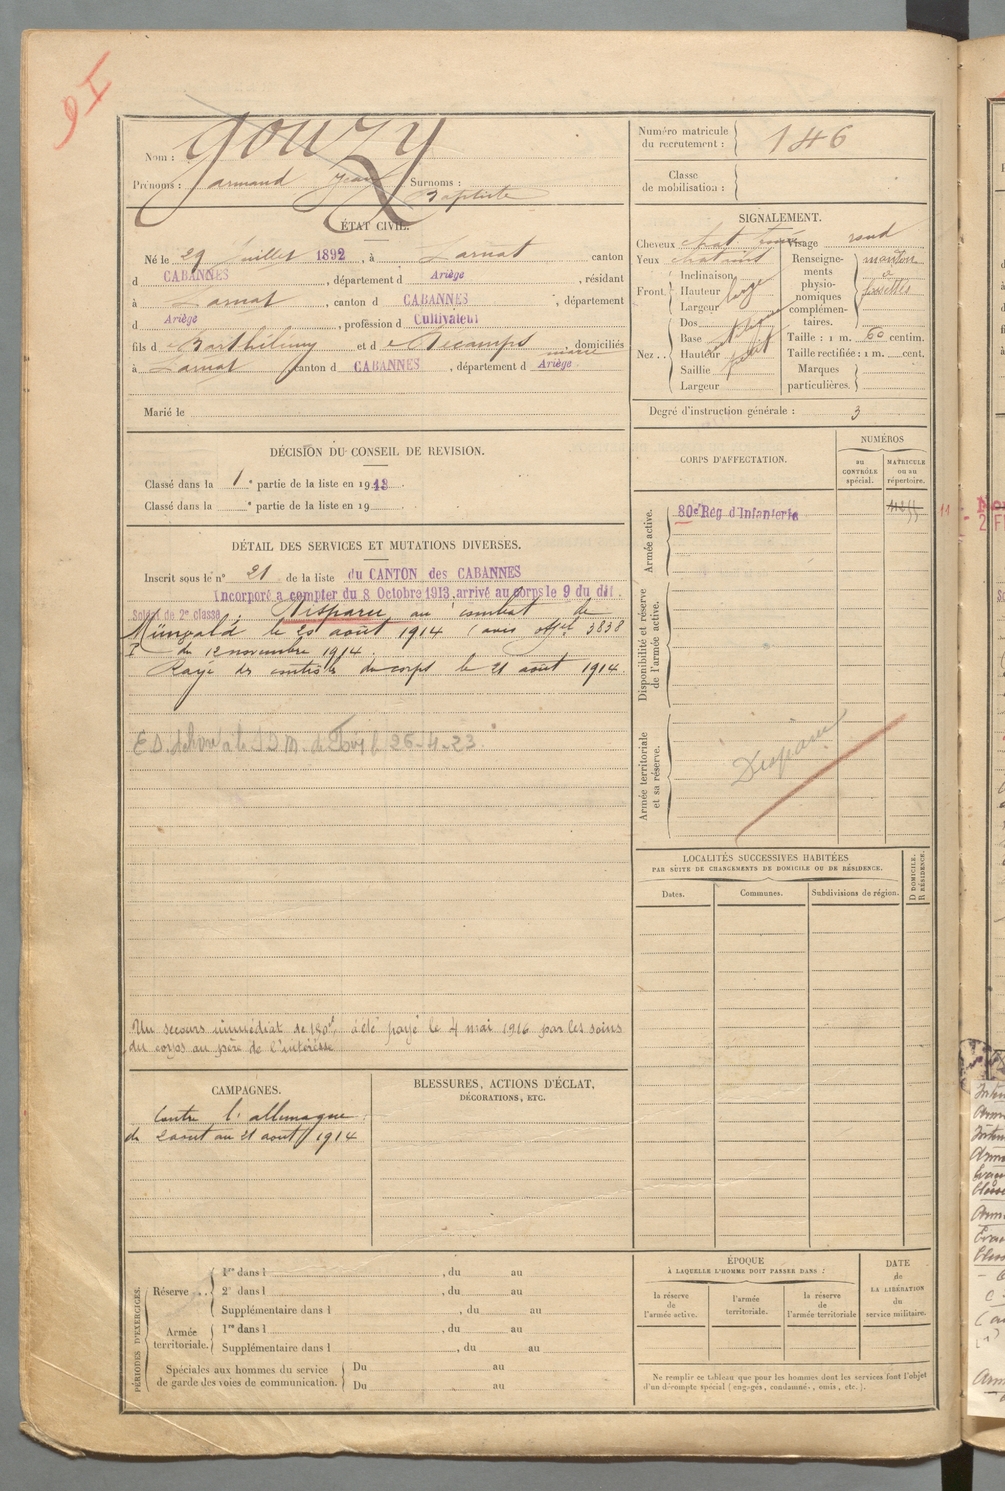 Nom : Gouzy
Prénoms : Armand Jean Surnoms : Baptiste
Numéro matricule du recrutement : 146
Classe de mobilisation :
ÉTAT CIVIL.
Né le 29 Juillet 1892, à Larnat canton
d CABANNES, département d Ariège, résidant
à Larnat, canton d CABANNES, département
d Ariège, profession d Cultivateur
fils d Barthélemy et d Decamps marie, domiciliés
à Larnat canton d CABANNES, département d Ariège.
Marié le
SIGNALEMENT.
Cheveux chat Visage rond
Yeux
Front Inclinaison
Hauteur large
Largeur
Nez Dos
Base
Hauteur petit
Saillie
Largeur
Renseignements physionomiques complémentaires. menton à fossettes
Taille : 1 m. 60 centim.
Taille rectifiée : 1 m. cent.
Marques particulières.
Degré d'instruction générale : 3
DÉCISION DU CONSEIL DE REVISION.
Classé dans la 1e partie de la liste en 1913.
Classé dans la e partie de la liste en 19 .
CORPS D'AFFECTATION.
NUMÉROS
au CONTRÔLE spécial.
MATRICULE ou au répertoire.
Armée active.
80e Rég d'Infanterie
Disponibilité et réserve de l'armée active.
Armée territoriale et sa réserve.
Disparu
DÉTAIL DES SERVICES ET MUTATIONS DIVERSES.
Inscrit sous le n° 21 de la liste du CANTON des CABANNES
Incorporé à compter du 8 Octobre 1913, arrivé au corps le 9 du dit.
Soldat de 2e classe. Disparu au combat de
le 20 août 1914 (avis offel 3838
du 12 novembre 1914.
Rayé des contrôles du corps le 21 août 1914.
26-4-23.
Un secours immédiat de 150f a été payé le 4 mai 1916 par les soins
du corps au père de l'intéressé
LOCALITÉS SUCCESSIVES HABITÉES
PAR SUITE DE CHANGEMENTS DE DOMICILE OU DE RÉSIDENCE.
D DOMICILE. R RÉSIDENCE.
Dates. Communes. Subdivisions de région.
CAMPAGNES.
Contre l'allemagne :
du 2 aout au 21 aout 1914
BLESSURES, ACTIONS D'ÉCLAT,
DÉCORATIONS, ETC.
PÉRIODES D'EXERCICES.
Réserve
1re dans l , du au
2e dans l , du au
Supplémentaire dans l , du au
Armée territoriale.
1re dans l , du au
Supplémentaire dans l , du au
Spéciales aux hommes du service de garde des voies de communication.
Du au
Du au
ÉPOQUE
À LAQUELLE L'HOMME DOIT PASSER DANS :
la réserve de l'armée active.
l'armée territoriale.
la réserve de l'armée territoriale
DATE de LA LIBÉRATION du service militaire.
Ne remplir ce tableau que pour les hommes dont les services font l'objet
d'un décompte spécial (engagés, condamnés, omis, etc.).